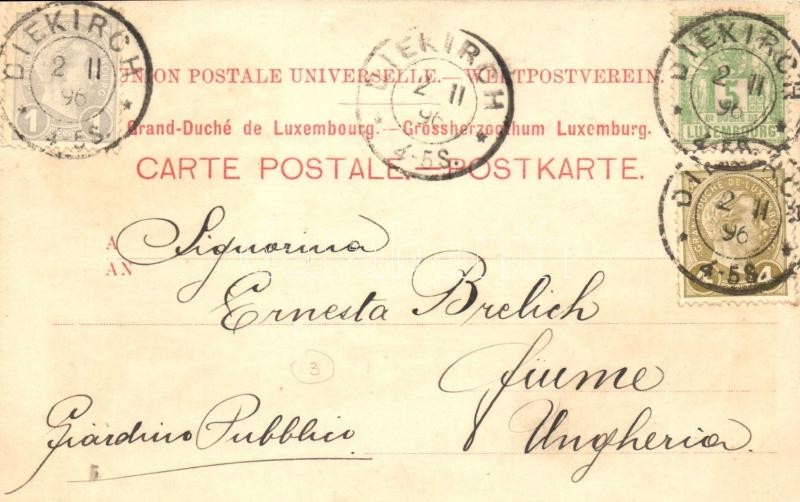 DIEKIRCH
2 11
96
4-5S.
1
DIEKIRCH
2 11
96
4-5S.
DIEKIRCH
2 11
96
5
LUXEMBOURG
UNION POSTALE UNIVERSELLE.—WELTPOSTVEREIN.
Grand-Duché de Luxembourg. — Grossherzogthum Luxemburg.
CARTE POSTALE. — POSTKARTE.
GRAND-DUCHÉ DE LUXEMBOURG
2 11
96
4-5S.
4
A
AN
Signorina
Ernesta Brelich
3
Fiume
Giardino Pubblico
Ungheria.